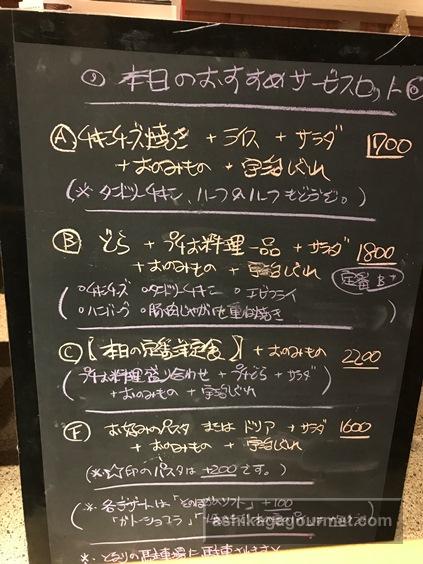 本日のおすすめサービスセット
Ⓐ チキンチーズ焼き + ライス + サラダ 1700
+ おのみもの + 宇治しぐれ
(※ タンドリーチキン、ハーフ&ハーフもどうぞ。)
Ⓑ どら + プチお料理一品 + サラダ 1800
+ おのみもの + 宇治しぐれ
定番 B
○チキンチーズ ○タンドリーチキン ○エビフライ
○ハンバーグ ○豚肉じゃがいも重ね焼き
Ⓒ 【本日の定番定食】 + おのみもの 2200
(プチお料理盛り合わせ + プチどら + サラダ
+ おのみもの + 宇治しぐれ)
Ⓕ お好みのパスタ または ドリア + サラダ 1600
+ おのみもの + 宇治しぐれ
(※☆印のパスタは +200 です。)
※ 各デザートは「そのほかソフト」+100
「ガトーショコラ」
ashikagagourmet.com
※ となりの駐車場に駐車